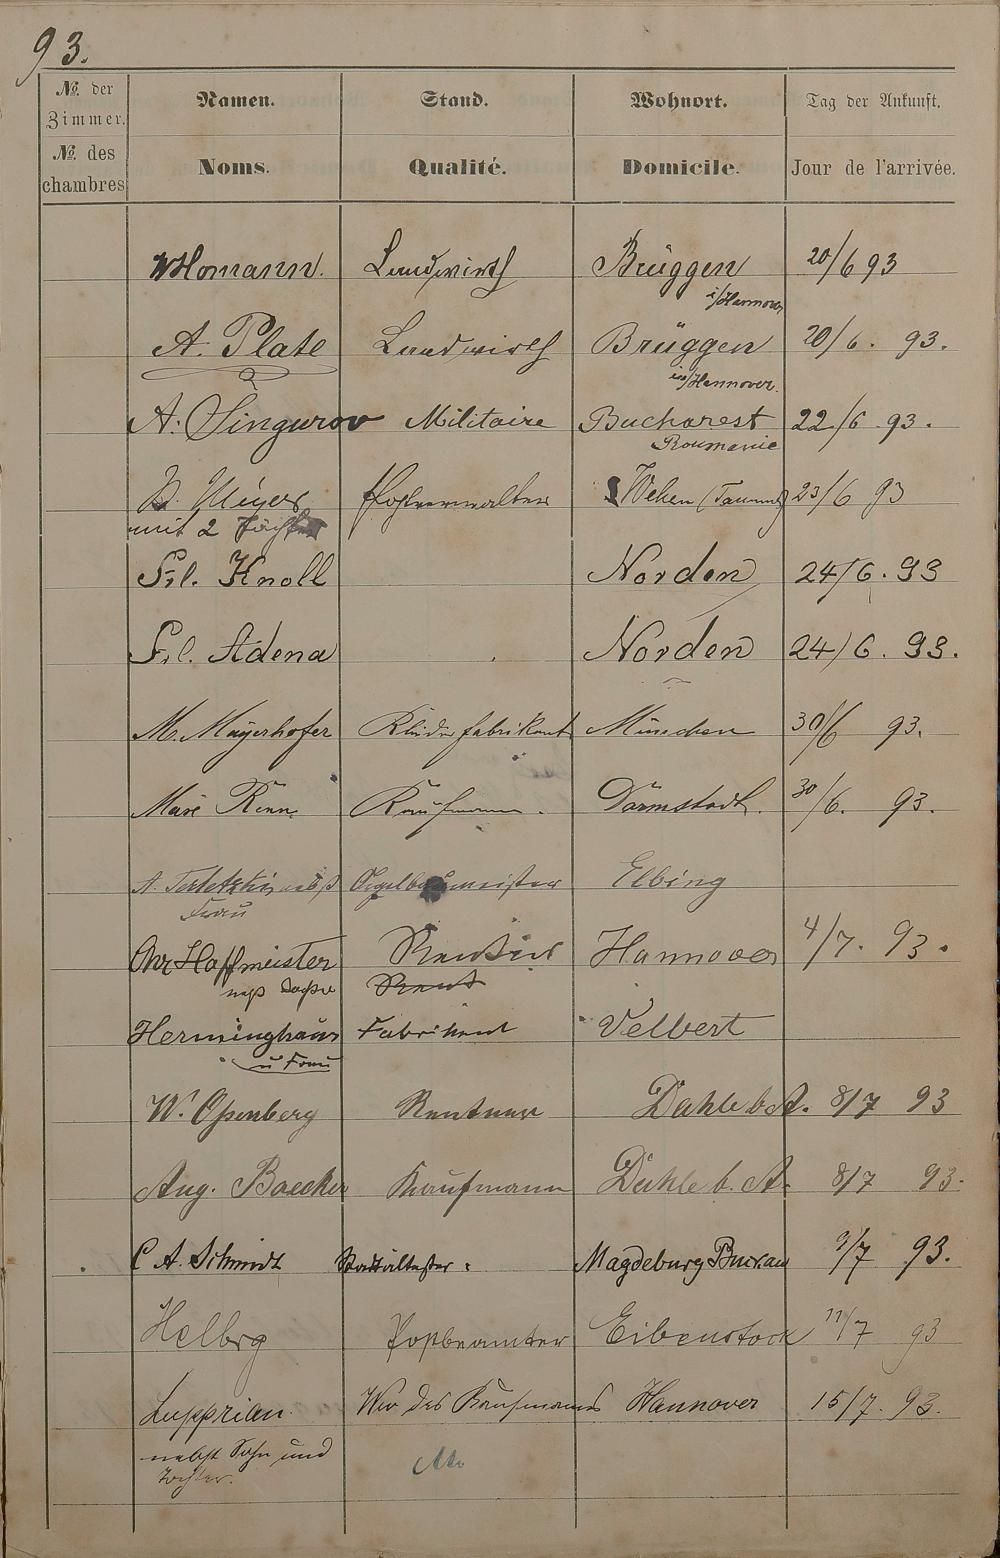 93.
№. der Zimmer. Namen. Stand. Wohnort. Tag der Ankunft.
№. des chambres Noms. Qualité. Domicile. Jour de l'arrivée.
W Homann. Landwirth Brüggen 20/6 93
i/Hannover
A. Plate Landwirth Brüggen 20/6. 93.
in/Hannover.
A. Singurov Militaire Bucharest 22/6 93.
Roumanie
Meyer Postverwalter Wehen (Taunus) 23/6 93
mit 2 Töchter
Frl. Knoll Norden 24/6. 93
Frl. Adena Norden 24/6. 93.
M. Mayerhofer Kleiderfabrikant München 30/6 93.
Kaufmann. Darmstadt. 30/6. 93.
A. Terletzki nebst Orgelbaumeister Elbing
Frau
Hoffmeister Rentier Hannover 4/7. 93.
nebst Tochter Rent
Herminghaus Fabrikant Velbert
u Frau
W. Openberg Rentner Dahle b. A. 8/7 93
Aug. Baecker Kaufmann Dahle b. A. 8/7 93.
C A. Schmidt Stadtältester. Magdeburg Buckau 9/7 93.
Helbig Postbeamter Eibenstock 11/7 93
Lupprian. Ww des Kaufmanns Hannover 15/7. 93.
nebst Sohn und
Tochter.